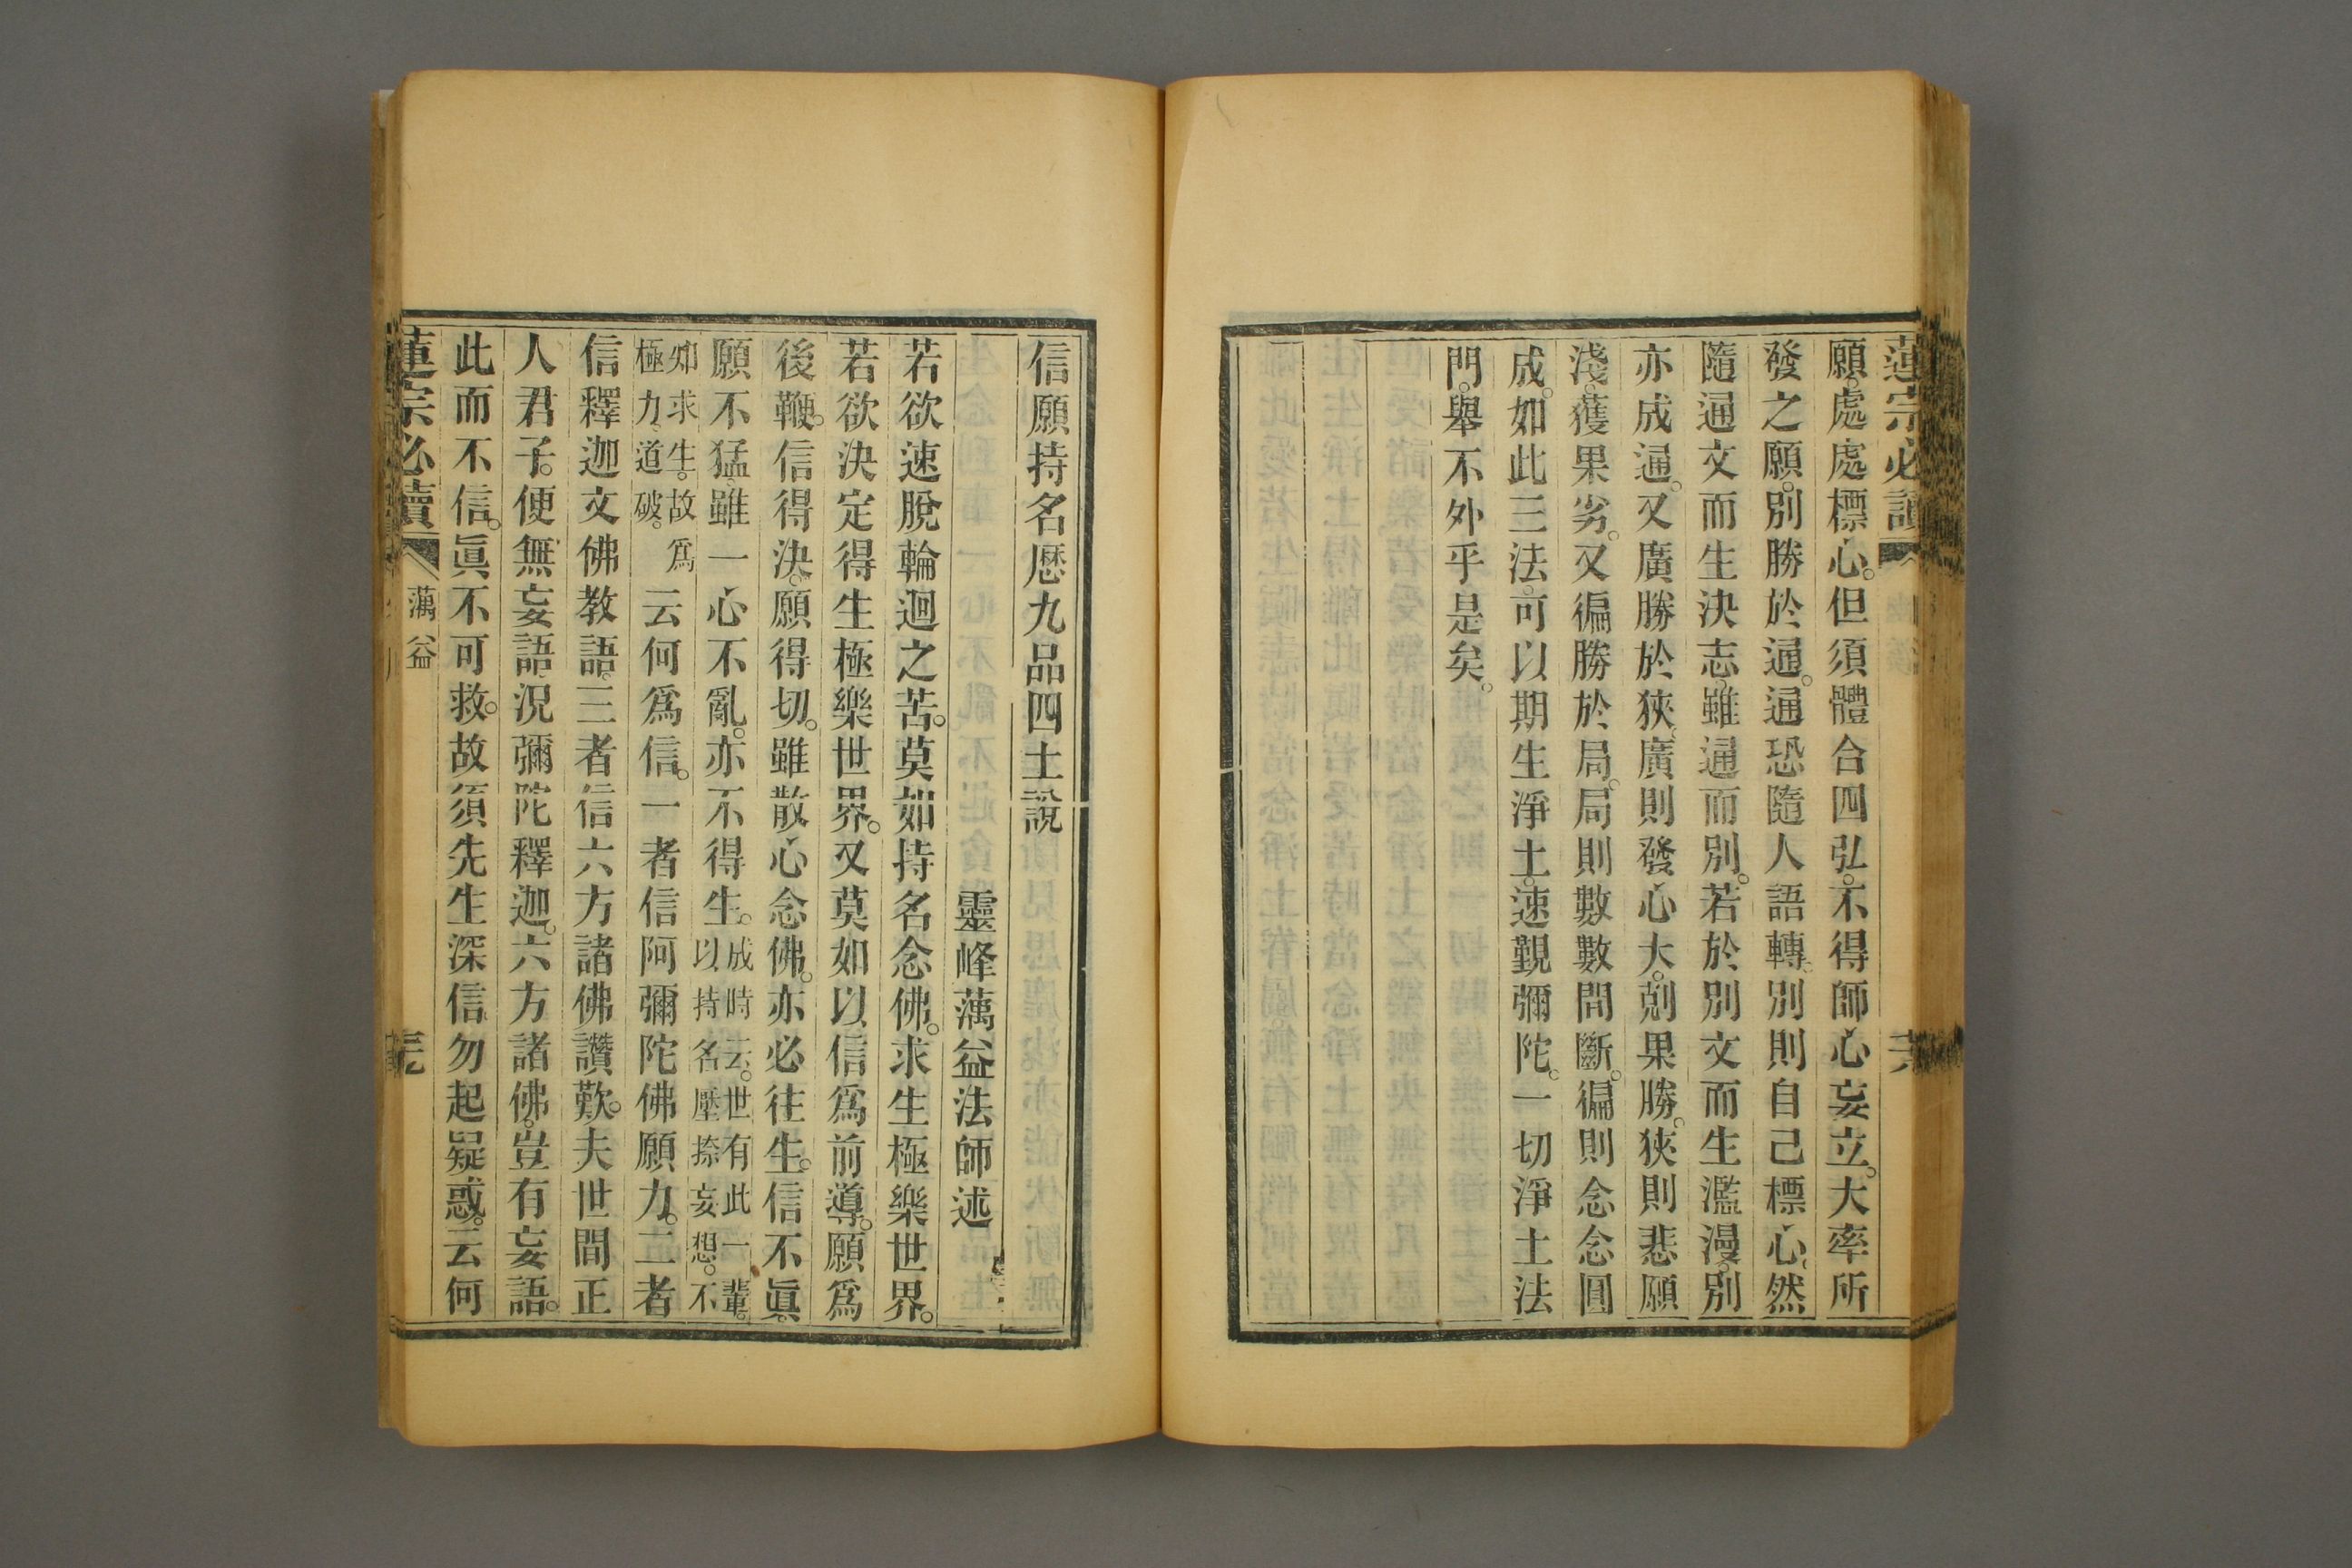 蓮宗必讀
願。處處標心。但須體合四弘。不得師心妄立。大率所
發之願。別勝於通。通恐隨人語轉。別則自己標心。然
隨通文而生決志。雖通而別。若於別文而生濫漫。別
亦成通。又廣勝於狹。廣則發心大。剋果勝。狹則悲願
淺。獲果劣。又徧勝於局。局則數數間斷。徧則念念圓
成。如此三法。可以期生淨土。速覲彌陀。一切淨土法
門。舉不外乎是矣。
信願持名歷九品四土說
靈峰蕅益法師述
若欲速脫輪迴之苦。莫如持名念佛。求生極樂世界。
若欲決定得生極樂世界。又莫如以信爲前導。願爲
後鞭。信得決。願得切。雖散心念佛。亦必往生。信不眞。
願不猛。雖一心不亂。亦不得生。成時云。世有此一輩。以持名壓捺妄想。不
知求生。故爲極力道破。云何爲信。一者信阿彌陀佛願力。二者
信釋迦文佛教語。三者信六方諸佛讚歎。夫世間正
人君子。便無妄語。況彌陀釋迦。六方諸佛。豈有妄語。
此而不信。眞不可救。故須先生深信勿起疑惑。云何
蓮宗必讀
蕅益